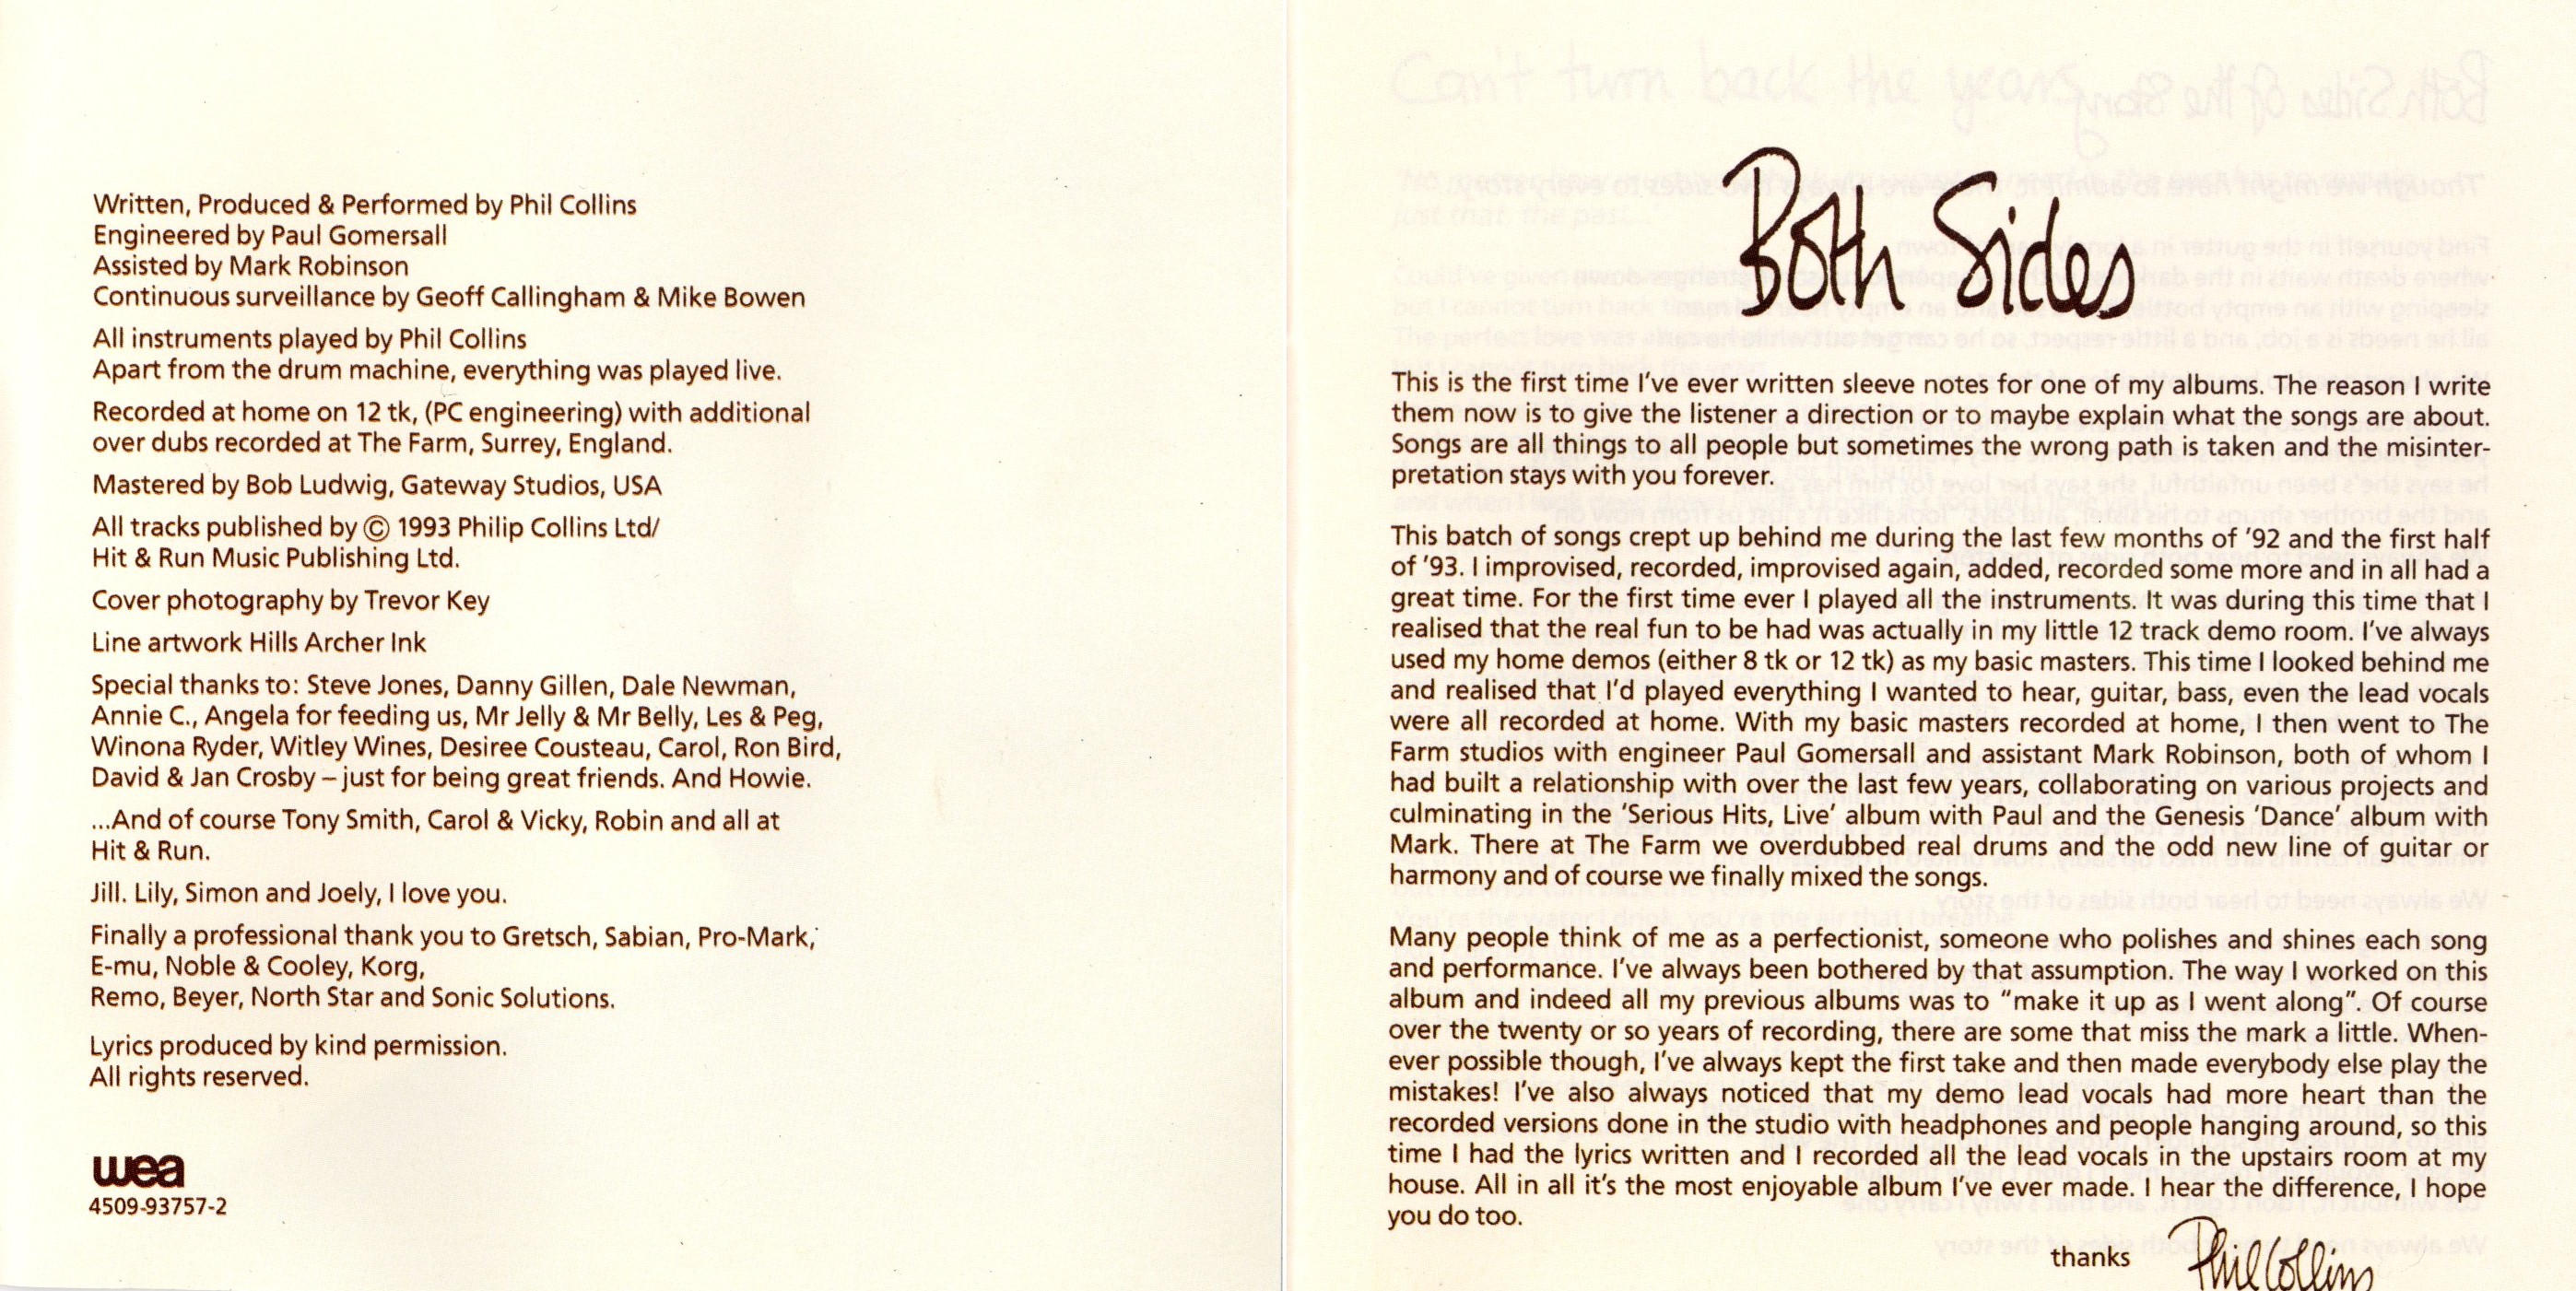 Written, Produced & Performed by Phil Collins
Engineered by Paul Gomersall
Assisted by Mark Robinson
Continuous surveillance by Geoff Callingham & Mike Bowen
All instruments played by Phil Collins
Apart from the drum machine, everything was played live.
Recorded at home on 12 tk, (PC engineering) with additional
over dubs recorded at The Farm, Surrey, England.
Mastered by Bob Ludwig, Gateway Studios, USA
All tracks published by © 1993 Philip Collins Ltd/
Hit & Run Music Publishing Ltd.
Cover photography by Trevor Key
Line artwork Hills Archer Ink
Special thanks to: Steve Jones, Danny Gillen, Dale Newman,
Annie C., Angela for feeding us, Mr Jelly & Mr Belly, Les & Peg,
Winona Ryder, Witley Wines, Desiree Cousteau, Carol, Ron Bird,
David & Jan Crosby – just for being great friends. And Howie.
...And of course Tony Smith, Carol & Vicky, Robin and all at
Hit & Run.
Jill. Lily, Simon and Joely, I love you.
Finally a professional thank you to Gretsch, Sabian, Pro-Mark,
E-mu, Noble & Cooley, Korg,
Remo, Beyer, North Star and Sonic Solutions.
Lyrics produced by kind permission.
All rights reserved.
wea
4509-93757-2
Can't turn back the years
Both Sides
This is the first time I've ever written sleeve notes for one of my albums. The reason I write
them now is to give the listener a direction or to maybe explain what the songs are about.
Songs are all things to all people but sometimes the wrong path is taken and the misinter-
pretation stays with you forever.
This batch of songs crept up behind me during the last few months of '92 and the first half
of '93. I improvised, recorded, improvised again, added, recorded some more and in all had a
great time. For the first time ever I played all the instruments. It was during this time that I
realised that the real fun to be had was actually in my little 12 track demo room. I've always
used my home demos (either 8 tk or 12 tk) as my basic masters. This time I looked behind me
and realised that I'd played everything I wanted to hear, guitar, bass, even the lead vocals
were all recorded at home. With my basic masters recorded at home, I then went to The
Farm studios with engineer Paul Gomersall and assistant Mark Robinson, both of whom I
had built a relationship with over the last few years, collaborating on various projects and
culminating in the 'Serious Hits, Live' album with Paul and the Genesis 'Dance' album with
Mark. There at The Farm we overdubbed real drums and the odd new line of guitar or
harmony and of course we finally mixed the songs.
Many people think of me as a perfectionist, someone who polishes and shines each song
and performance. I've always been bothered by that assumption. The way I worked on this
album and indeed all my previous albums was to "make it up as I went along". Of course
over the twenty or so years of recording, there are some that miss the mark a little. When-
ever possible though, I've always kept the first take and then made everybody else play the
mistakes! I've also always noticed that my demo lead vocals had more heart than the
recorded versions done in the studio with headphones and people hanging around, so this
time I had the lyrics written and I recorded all the lead vocals in the upstairs room at my
house. All in all it's the most enjoyable album I've ever made. I hear the difference, I hope
you do too.
thanks Phil Collins